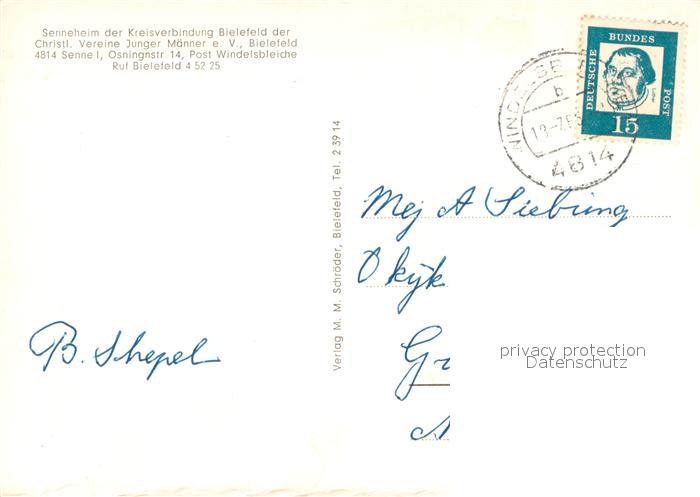 Senneheim der Kreisverbindung Bielefeld der
Christl. Vereine Junger Männer e. V., Bielefeld
4814 Senne I, Osningnstr. 14, Post Windelsbleiche
Ruf Bielefeld 4 52 25
DEUTSCHE
BUNDES
POST
Luther
15
b
4814
Verlag M. M. Schröder, Bielefeld, Tel. 2 39 14
Mej A Siebring
B. Shepel
privacy protection
Datenschutz